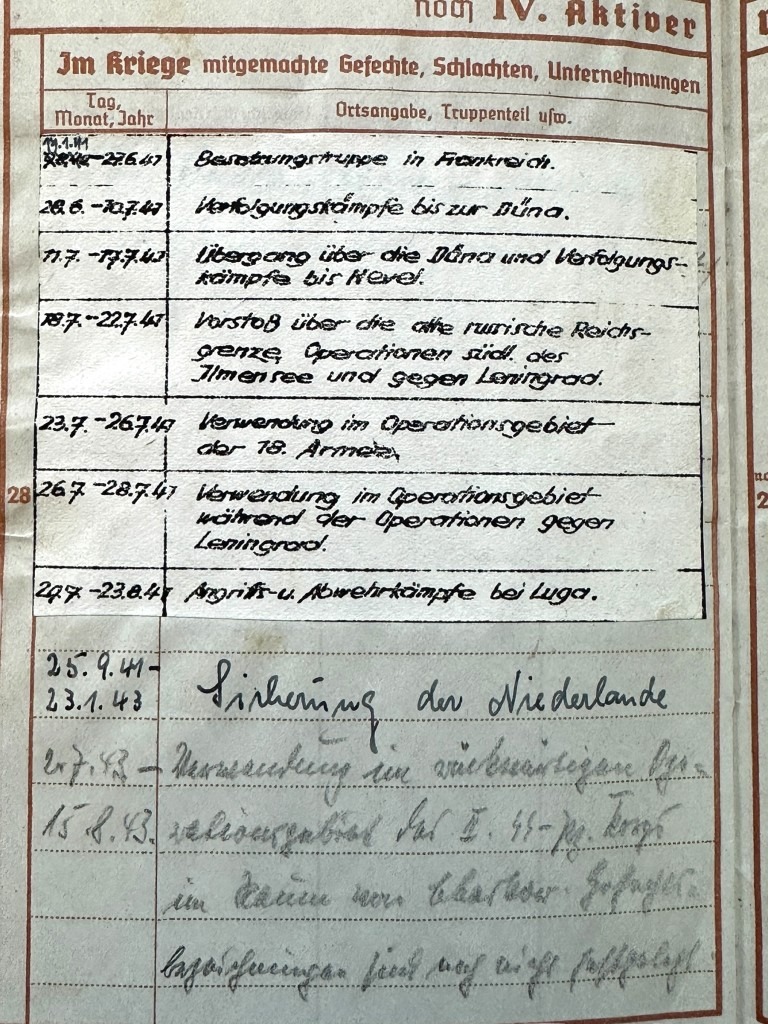 noch IV. Aktiver
Im Kriege mitgemachte Gefechte, Schlachten, Unternehmungen
Tag, Monat, Jahr
Ortsangabe, Truppenteil usw.
19.1.41
-27.6.41 Besatzungstruppe in Frankreich.
28.6. -10.7.41 Verfolgungskämpfe bis zur Düna.
11.7. -17.7.41 Übergang über die Düna und Verfolgungs-
kämpfe bis Nevel.
18.7. -22.7.41 Vorstoß über die alte russische Reichs-
grenze, Operationen südl. des
Ilmensee und gegen Leningrad.
23.7. -26.7.41 Verwendung im Operationsgebiet
der 18. Armee.
28 26.7. -28.7.41 Verwendung im Operationsgebiet
während der Operationen gegen
Leningrad.
29.7. -23.8.41 Angriffs-u. Abwehrkämpfe bei Luga.
25.9.41-
23.1.43 Sicherung der Niederlande
2.7.43 - Verwendung im rückwärtigen Ope-
15.8.43. rationsgebiet des II. SS-Pz. Korps
im Raum von Charkow. Gefechts-
bezeichnungen sind noch nicht festgelegt
2